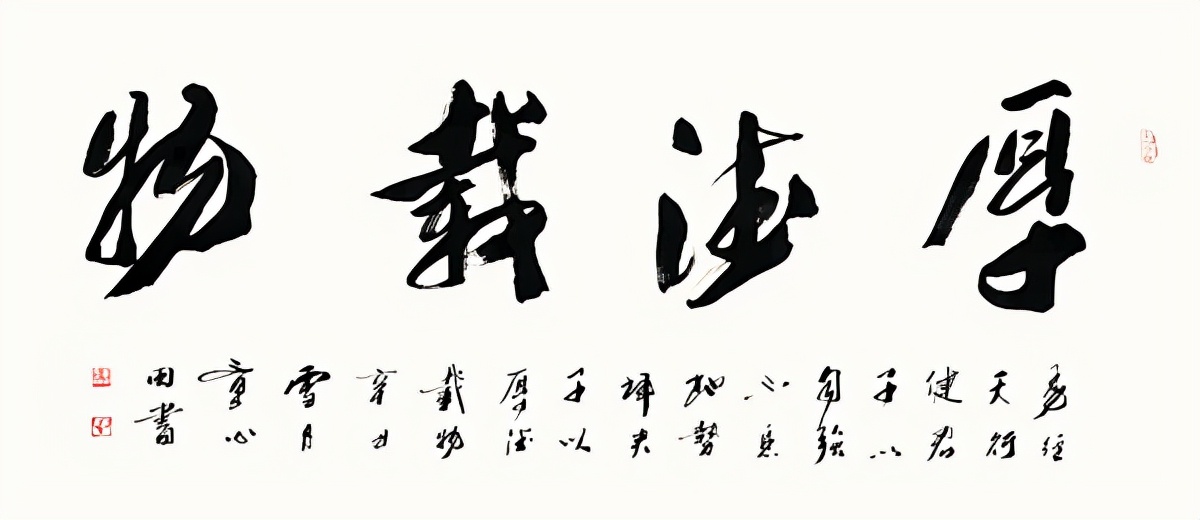 厚德載物
易經
天行
健君
子以
自強
不息
地勢
坤君
子以
厚德
載物
辛丑
雪月
童心
田書